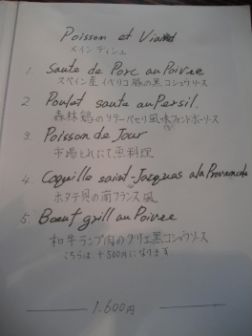 Poisson et Viand
メインディシュ
1. Saute de Porc au Poivre
スペイン産イベリコ豚の黒コショウソース
2 Poulet saute au Persil.
森林鶏のソテーパセリ風味フォンドボーソース
3 Poisson de Jour
市場とれたて魚料理
4 Coquille saint-Jacques a la Provencale
ホタテ貝の南フランス風
5 Boeuf grill au Poivre
和牛ランプ肉のグリエ黒コショウソース
こちらは+500円になります
1.600円